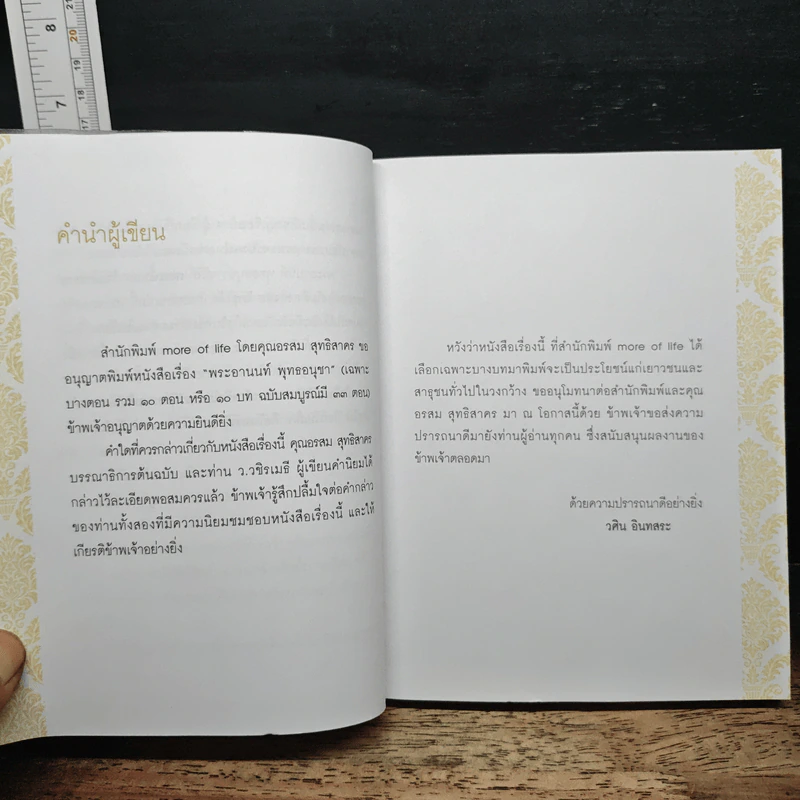 8
20
19
18
7
17
คำนำผู้เขียน
สำนักพิมพ์ more of life โดยคุณอรสม สุทธิสาคร ขอ
อนุญาตพิมพ์หนังสือเรื่อง “พระอานนท์ พุทธอนุชา” (เฉพาะ
บางตอน รวม ๑๐ ตอน หรือ ๑๐ บท ฉบับสมบูรณ์มี ๓๓ ตอน)
ข้าพเจ้าอนุญาตด้วยความยินดียิ่ง
คำใดที่ควรกล่าวเกี่ยวกับหนังสือเรื่องนี้ คุณอรสม สุทธิสาคร
บรรณาธิการต้นฉบับ และท่าน ว.วชิรเมธี ผู้เขียนคำนิยมได้
กล่าวไว้ละเอียดพอสมควรแล้ว ข้าพเจ้ารู้สึกปลื้มใจต่อคำกล่าว
ของท่านทั้งสองที่มีความนิยมชมชอบหนังสือเรื่องนี้ และให้
เกียรติข้าพเจ้าอย่างยิ่ง
หวังว่าหนังสือเรื่องนี้ ที่สำนักพิมพ์ more of life ได้
เลือกเฉพาะบางบทมาพิมพ์จะเป็นประโยชน์แก่เยาวชนและ
สาธุชนทั่วไปในวงกว้าง ขออนุโมทนาต่อสำนักพิมพ์และคุณ
อรสม สุทธิสาคร มา ณ โอกาสนี้ด้วย ข้าพเจ้าขอส่งความ
ปรารถนาดีมายังท่านผู้อ่านทุกคน ซึ่งสนับสนุนผลงานของ
ข้าพเจ้าตลอดมา
ด้วยความปรารถนาดีอย่างยิ่ง
วศิน อินทสระ